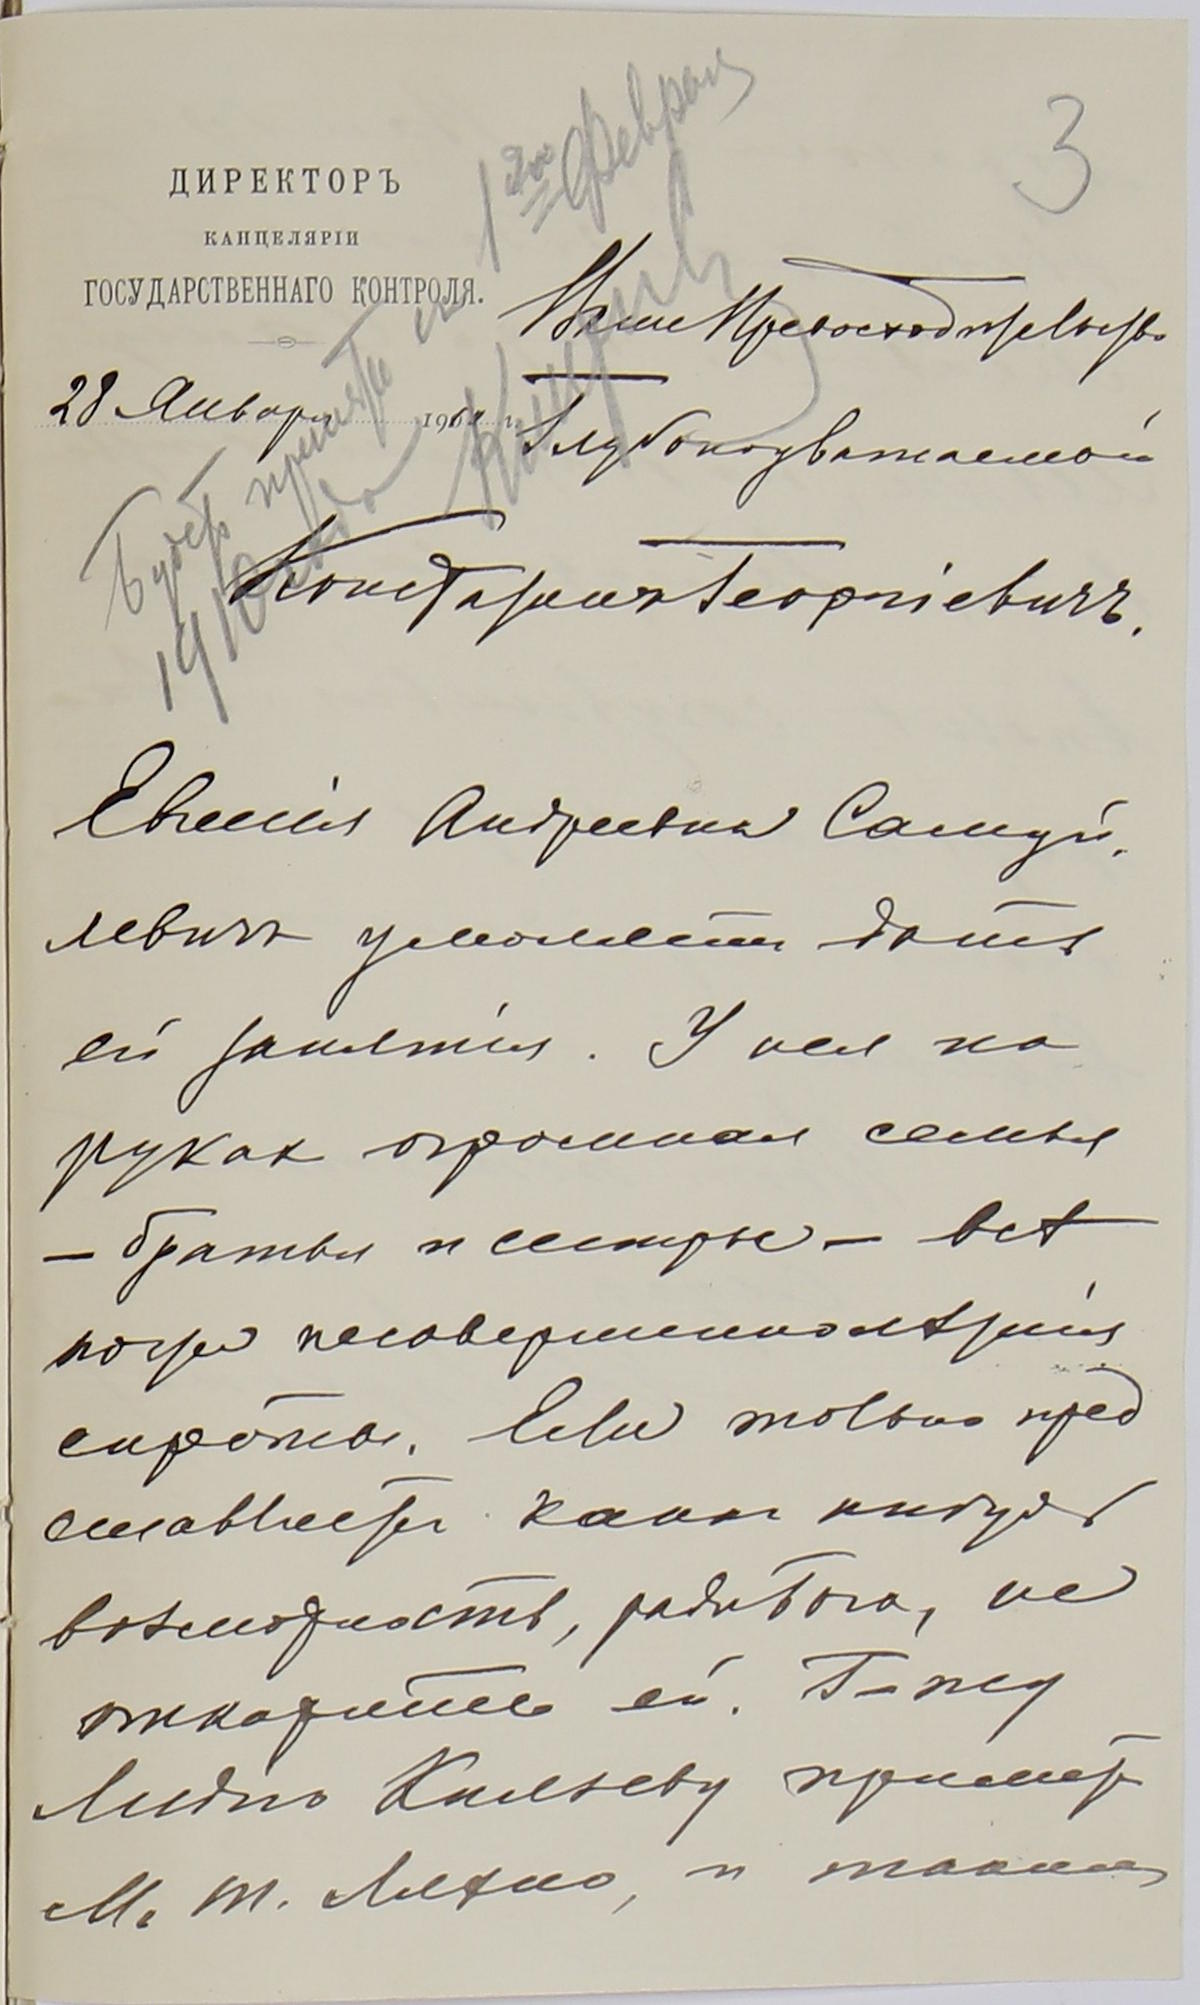 3
ДИРЕКТОРЪ
КАНЦЕЛЯРІИ
ГОСУДАРСТВЕННАГО КОНТРОЛЯ.
28 Января 19 г.
Будетъ принята съ
1го Февраля
1910 года
Ваше Превосходительство
Глубокоуважаемый
Константинъ Георгіевичъ.
Евгенія Андреевна Самуй-
левичъ умоляетъ дать
ей занятія. У нея на
рукахъ огромная семья
– братья и сестры – всѣ
почти несовершеннолѣтнія
сироты. Если только пред
ставляется какая нибудь
возможность, ради Бога, не
откажите ей. Г-жу
Лидію Князеву приметъ
М. Т. и такимъ